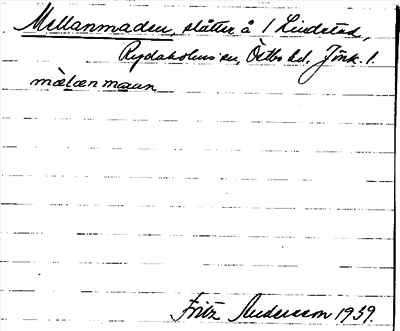 Mellanmaden, slåtter å 1 Lindstad,
Rydaholms sn, Östbo hd, Jönk. l.
mælæn maun
Fritz Andersson 1939.